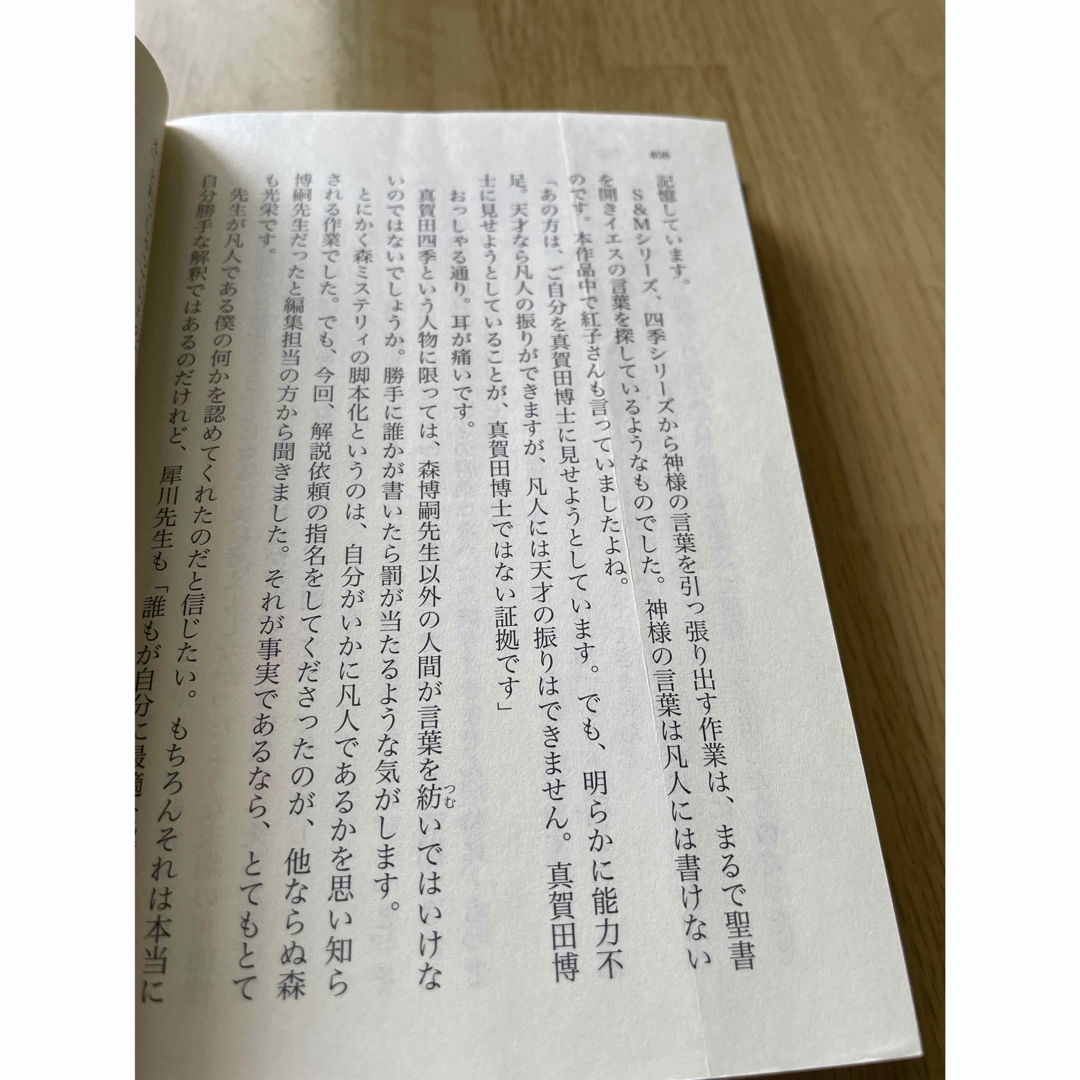 記憶しています。
S&Mシリーズ、四季シリーズから神様の言葉を引っ張り出す作業は、まるで聖書
を開きイエスの言葉を探しているようなものでした。神様の言葉は凡人には書けない
のです。本作品中で紅子さんも言っていましたよね。
「あの方は、ご自分を真賀田博士に見せようとしています。でも、明らかに能力不
足。天才なら凡人の振りができますが、凡人には天才の振りはできません。真賀田博
士に見せようとしていることが、真賀田博士ではない証拠です」
おっしゃる通り。耳が痛いです。
真賀田四季という人物に限っては、森博嗣先生以外の人間が言葉を紡いではいけな
つむ
いのではないでしょうか。勝手に誰かが書いたら罰が当たるような気がします。
とにかく森ミステリィの脚本化というのは、自分がいかに凡人であるかを思い知ら
される作業でした。でも、今回、解説依頼の指名をしてくださったのが、他ならぬ森
博嗣先生だったと編集担当の方から聞きました。それが事実であるなら、とてもとて
も光栄です。
先生が凡人である僕の何かを認めてくれたのだと信じたい。もちろんそれは本当に
自分勝手な解釈ではあるのだけれど、犀川先生も「誰もが自分に最適